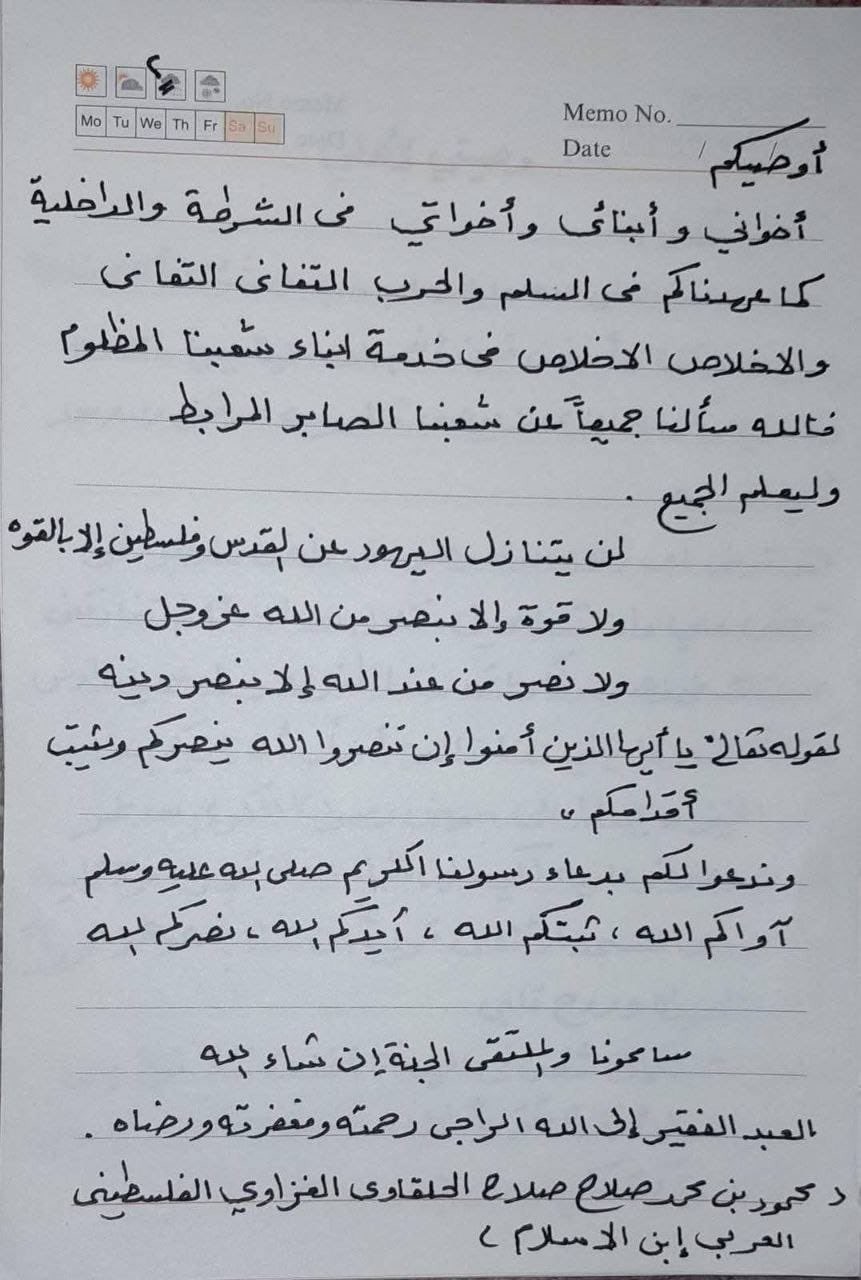 ٢
Mo Tu We Th Fr Sa Su
Memo No.
Date / /
أوصيكم
أخواني و أبنائى وأخواتي فى الشرطة والداخلية
كما عهدناكم فى السلم والحرب التفانى التفانى
والاخلاص الاخلاص فى خدمة ابناء شعبنا المظلوم
فالله سألنا جميعاً عن شعبنا الصابر المرابط
وليعلم الجميع .
لن يتنازل اليهود عن القدس وفلسطين إلا بالقوه
ولا قوة إلا بنصر من الله عز وجل
ولا نصر من عند الله إلا بنصر دينه
لقوله تعالى " يا أيها الذين أمنوا إن تنصروا الله ينصركم ويثبت
أقدامكم "
وندعوا لكم بدعاء رسولنا الكريم صلى الله عليه وسلم
آواكم الله ، ثبتكم الله ، أيدكم الله ، نصركم الله
سامحونا والملتقى الجنة إن شاء الله
العبد الفقير إلى الله الراجى رحمته ومغفرته ورضاه .
د محمود بن محمد صلاح صلاح الحلقاوى الغزاوي الفلسطينى
العربي إبن الاسلام )